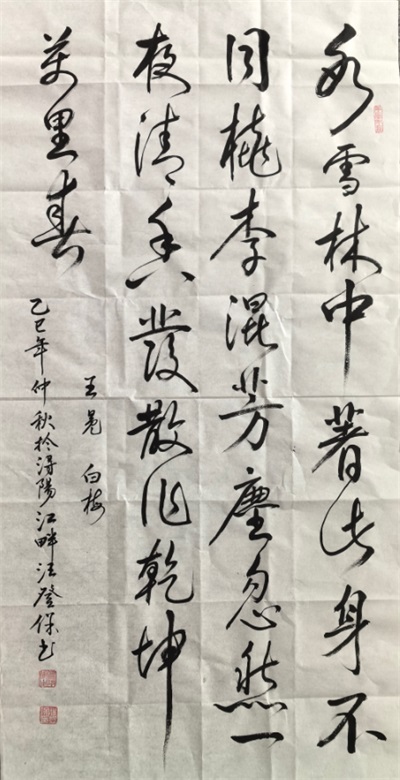 冰雪林中著此身不
同桃李混芳塵忽然一
夜清香發散作乾坤
萬里春
王冕 白梅
乙巳年仲秋於潯陽江畔汪登保书